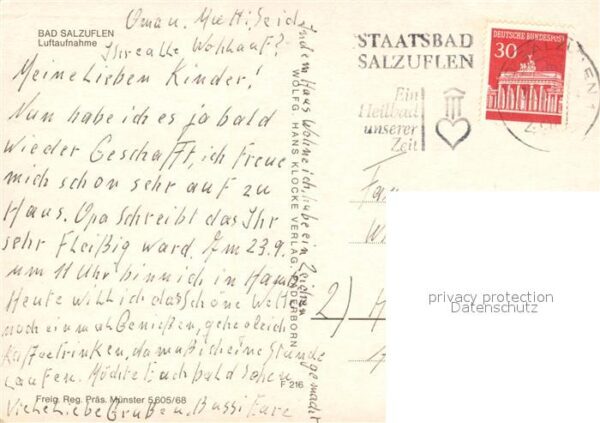 BAD SALZUFLEN
Luftaufnahme
Oma u. Mutti Seid
Ihr alle Wohlauf?
Meine Lieben Kinder!
Nun habe ich es ja bald
wieder Geschafft, ich Freue
mich schon sehr auf zu
Haus. Opa Schreibt das Ihr
sehr Fleißig ward. Am 23.9.
um 11 Uhr bin ich in Hamb.
Heute will ich das schöne Wetter
noch einmal Genießen, gehe gleich
Kaffeetrinken, da muß ich eine Stunde
Laufen. Möchte Euch bald Sehen
Viele Liebe Grüße u. Bussi Eure
Freig. Reg. Präs. Münster 5,605/68
In dem Haus Wohne ich, habe ein Zeichen gemacht
WOLFG. HANS KLOCKE VERLAG PADERBORN
F 216
STAATSBAD
SALZUFLEN
Ein
Heilbad
unserer
Zeit
DEUTSCHE BUNDESPOST
30
2)
privacy protection
Datenschutz